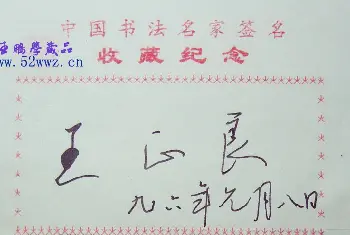 中国书法名家签名
收藏纪念
亚鹏学藏品
www.52wwz.cn
王正良
九六年元月八日